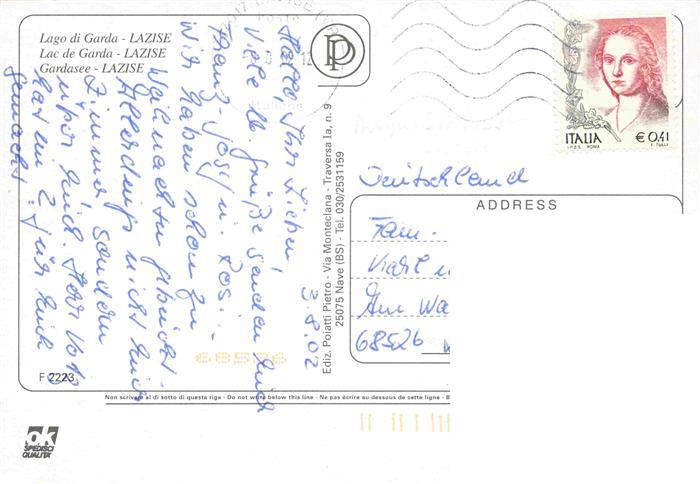 Lago di Garda - LAZISE
Lac de Garda - LAZISE
Gardasee - LAZISE
3.8.02
Hallo, Ihr Lieben,
Viele lb. Grüße senden Euch
Franz-Josef u. Ros...
Wir haben schon zu
Weihnachten gebucht.
Allerdings nicht Euer
Zimmer, sondern
über Euch. Herr
hat ein 2 für Euch
gemacht.
F 2223
ok
SPEDISCI
QUALITÀ
Ediz. Poiatti Pietro - Via Monteclana - Traversa Ia, n. 9
25075 Nave (BS) - Tel. 030/2531159
P
ITALIA
€ 0,41
I.P.Z.S. ROMA
F. TULLI
Deutschland
ADDRESS
Fam.
Karl u
Am Wa
68526
68526
Non scrivere al di sotto di questa riga - Do not write below this line - Ne pas écrire au dessous de cette ligne - B